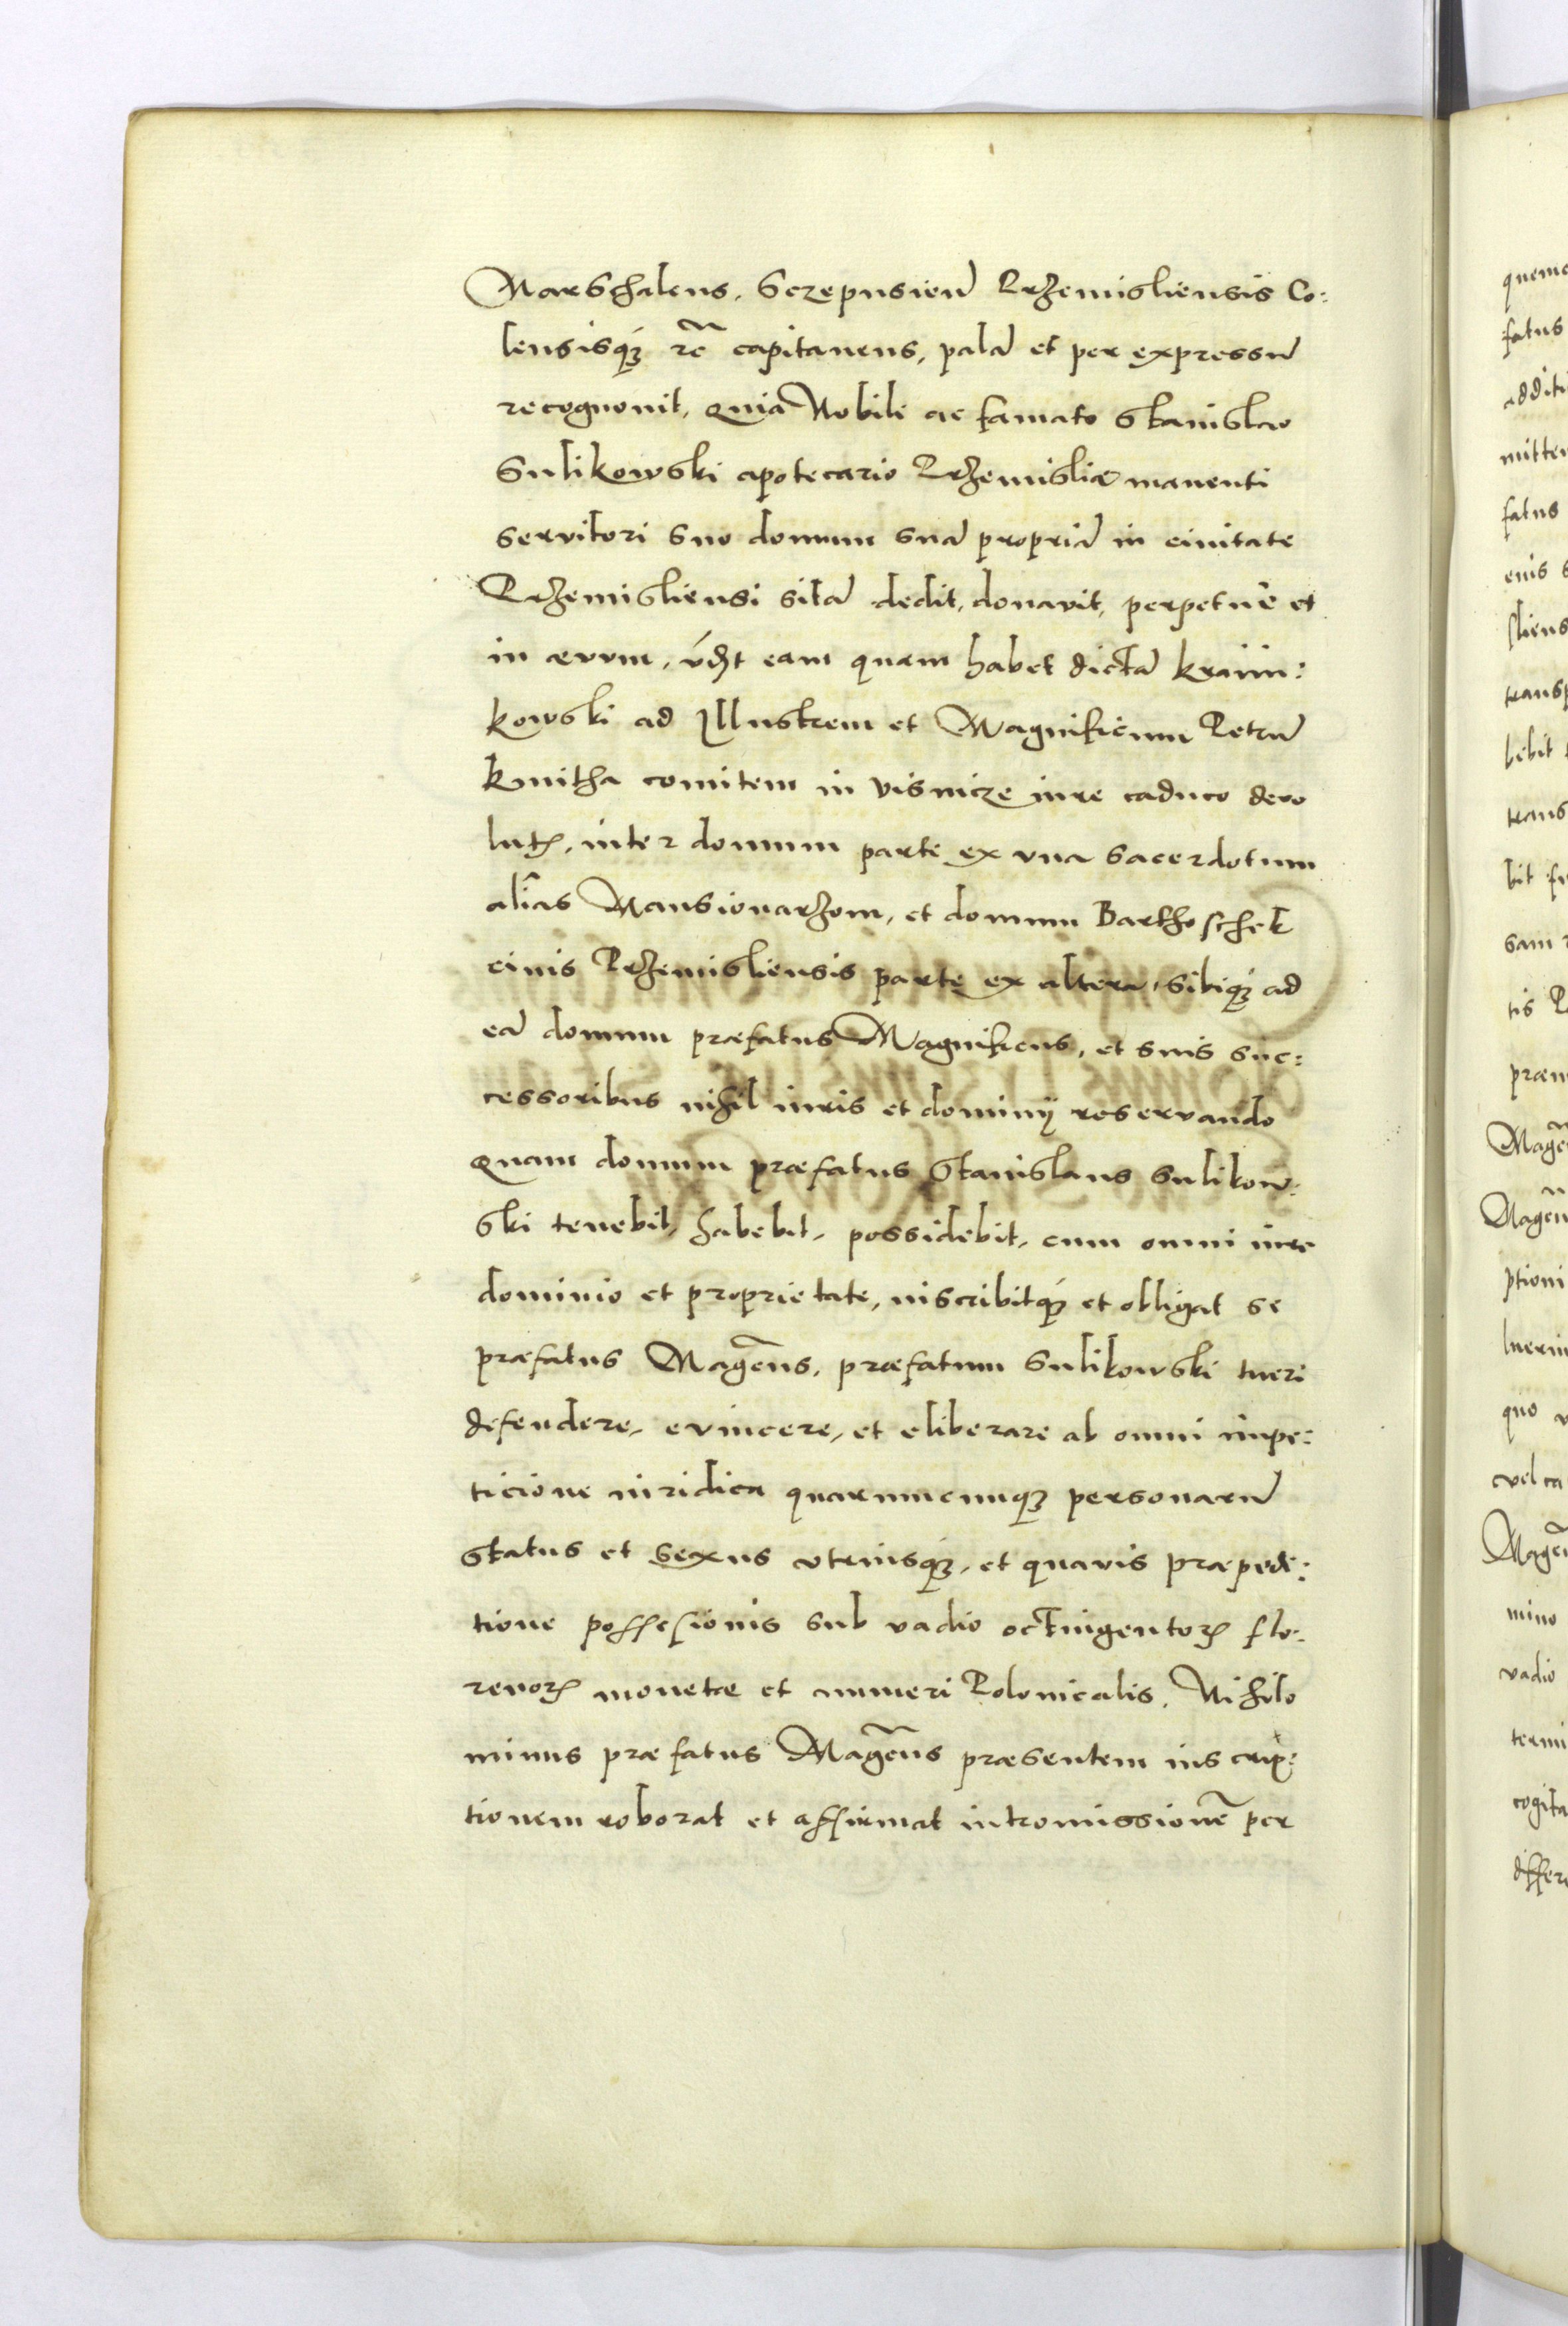 Marschalcus, Sczepusieñ Przemisliensis Co:
lensisq́ꝫ rc̃ capitaneus, palã et per expressũ
recognouit, quia Nobili ac famato Stanislao
Sulikowski apotecario Przemisliæ manenti
servitori suo domum suã propriã in ciuitate
Przemisliensi sitã dedit, donavit, perpetue et
in ævum, vꝫt eam quam habet dictã kraiin:
kowski ad Illustrem et Magnificum Petrũ
kmitha comitem in visnicze iure caduco devo
lutꝫ, inter domum parte ex vna sacerdotum
alias Mansionarzom, et domum Barthoschek
ciuis Przemisliensis parte ex altera, sibiq́ꝫ ad
eã domum præfatus Magnificus, et suis suc:
cessoribus nihil iuris et dominij reservando
Quam domum præfatus Stanislaus Sulikow:
ski tenebit, habebit, possidebit, cum omni iure
dominio et proprietate, inscribitq́ꝫ et obligat se
præfatus Magc̃us, præfatum Sulikowski tueri
defendere, evincere, et eliberare ab omni impe:
ticione iuridica quarumcunqꝫ personarũ
status et sexus vtriusqꝫ, et quavis præpedi:
tione possesionis sub vadio octingentorꝫ flo:
renorꝫ monetæ et numeri Polonicalis. Nihilo
minus præfatus Magc̃us præsentem inscrip:
tionem roborat et affirmat intromissionẽ per
quem
fatus
additi
mitten
fatus
enis
sliens
transp
bebit
trans
bit
sam
tis
præm
Magc̃
Magc̃
ptioni
luerin
quo
vel ca
Magc̃
mino
vadio
termi
cogita
differ